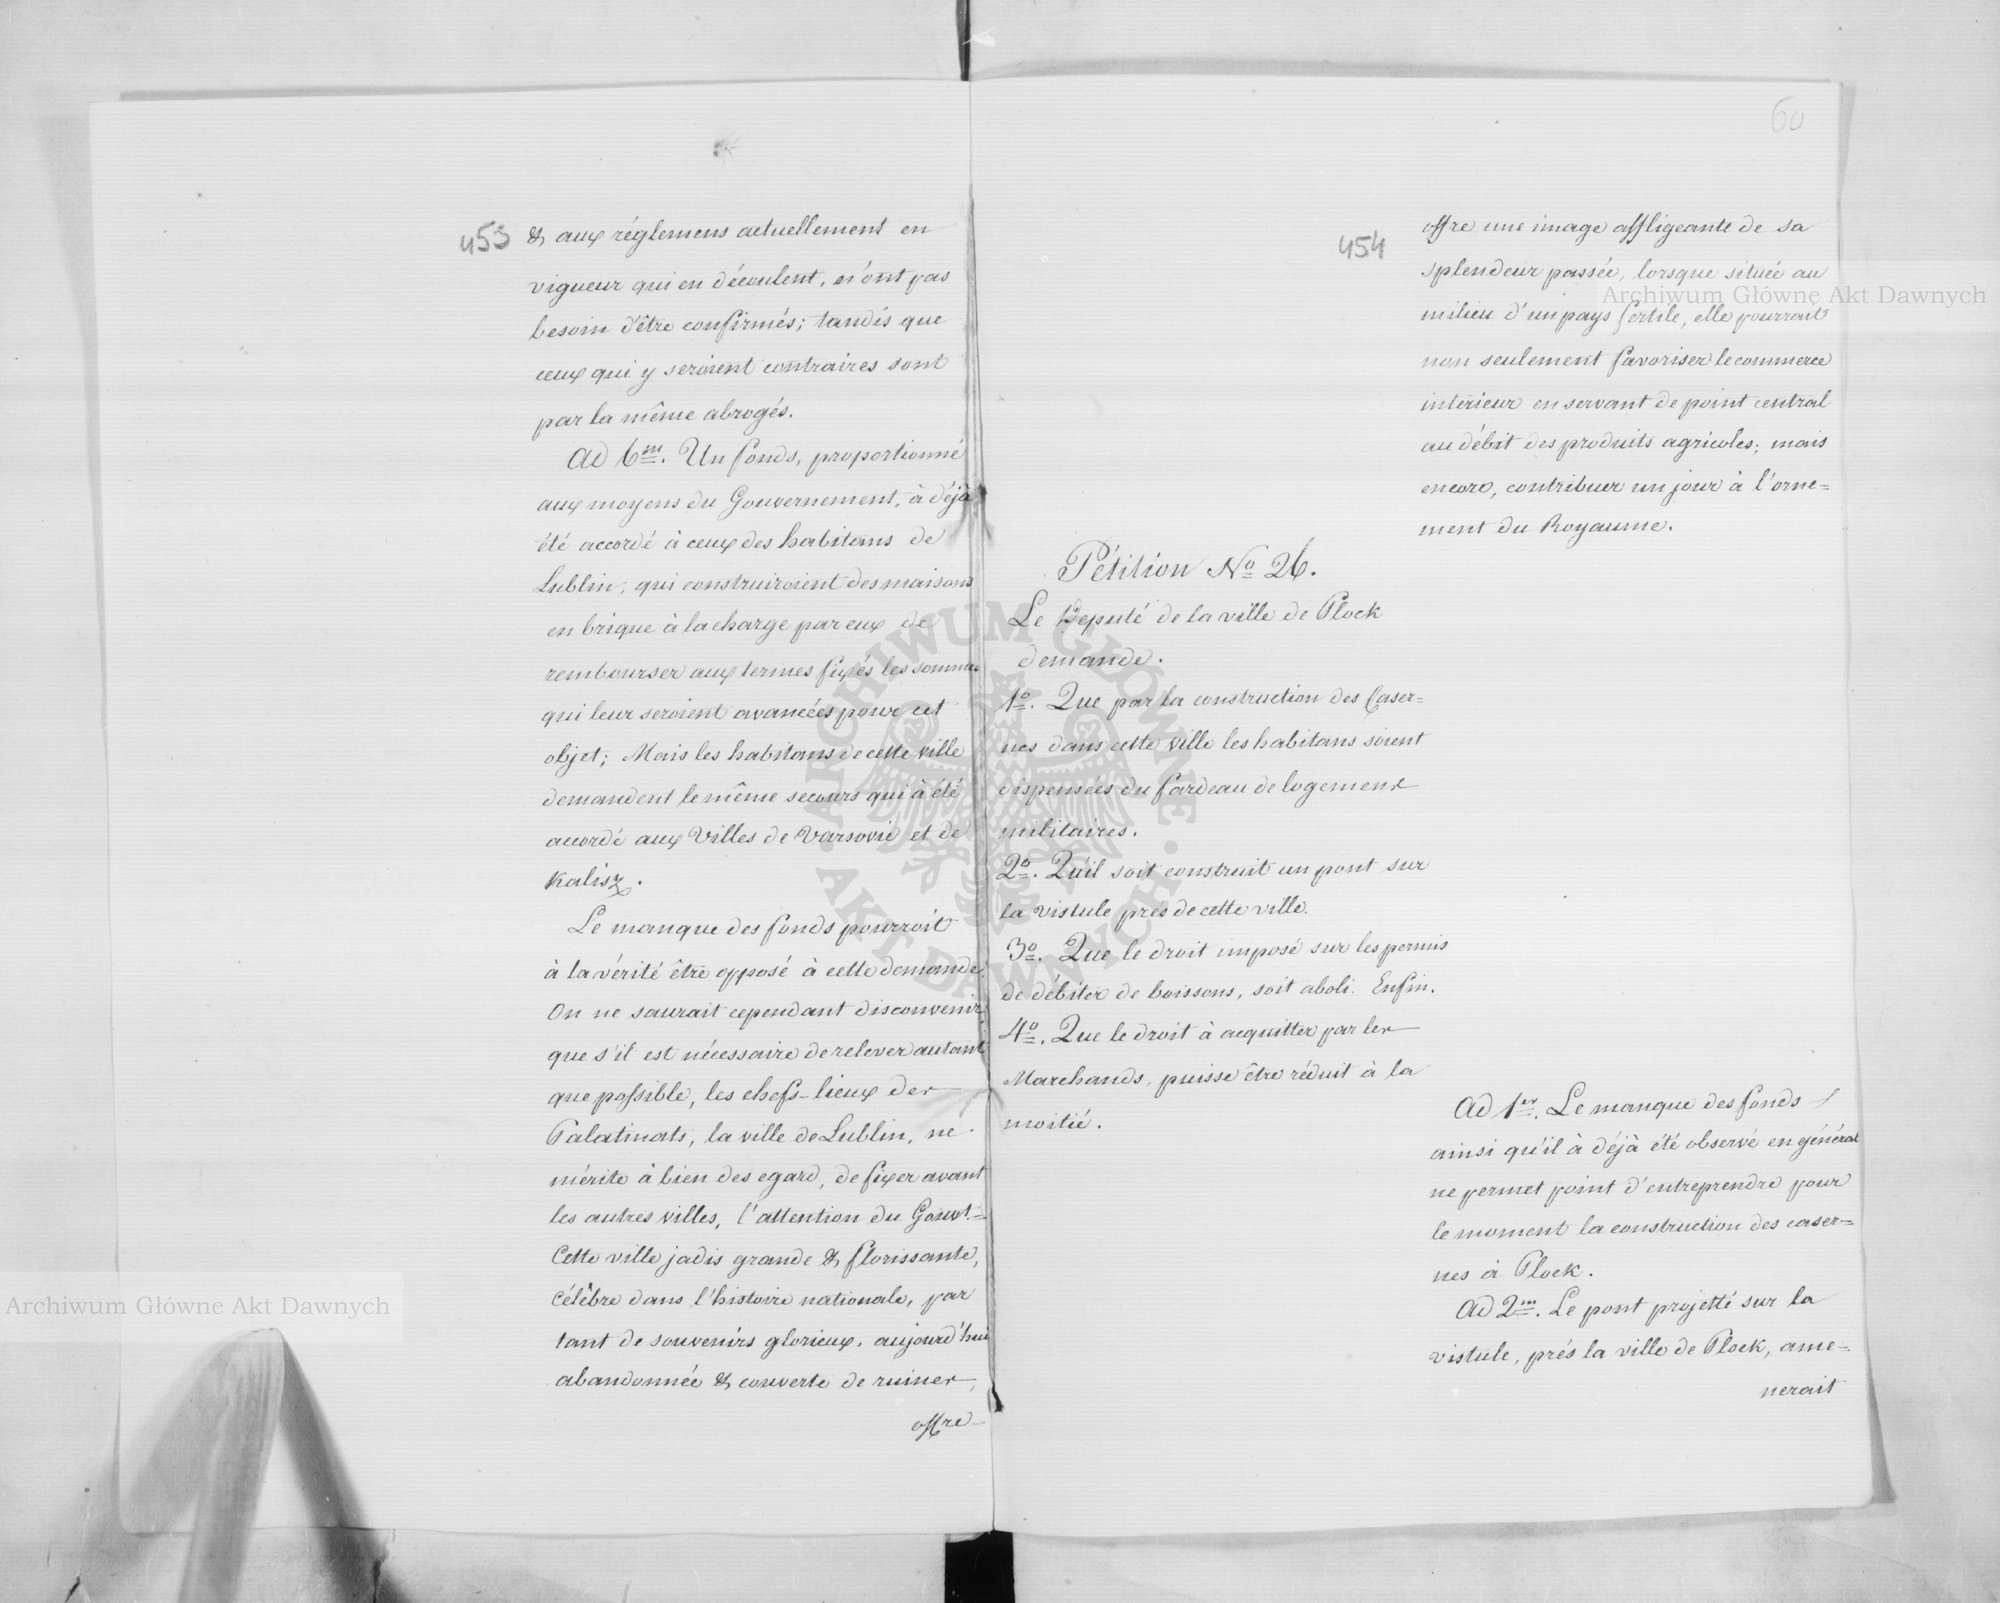 453
& aux réglemens actuellement en
vigueur qui en découlent, n'ont pas
besoin d'être confirmés; tandis que
ceux qui y seroient contraires sont
par la même abrogés.
Ad 6m. Un fonds, proportionné
aux moyens du Gouvernement, à déjà
été accordé à ceux des habitans de
Lublin, qui construiroient des maisons
en brique à la charge par eux de
rembourser aux termes fixés les sommes
qui leur seroient avancées pour cet
objet; Mais les habitans de cette ville
demandent le même secours qui à été
accordé aux Villes de Varsovie et de
Kalisz.
Le manque des fonds pourroit
à la vérité être opposé à cette demande.
On ne saurait cependant disconvenir
que s'il est nécessaire de relever autant
que possible, les chefs-lieux des
Palatinats, la ville de Lublin, ne
mérite à bien des egard, de fixer avant
les autres villes, l'attention du Gouvt.=
Cette ville jadis grande & florissante,
célèbre dans l'histoire nationale, par
tant de souvenirs glorieux, aujourd'hui
abandonnée & couverte de ruines,
offre
60
454
offre une image affligeante de sa
splendeur passée, lorsque située au
milieu d'un pays fertile, elle pourrait
non seulement favoriser le commerce
intérieur en servant de point central
au débit des produits agricoles; mais
encore, contribuer un jour à l'orne=
ment du Royaume.
Pétition No 26.
Le Deputé de la ville de Plock
demande.
1o. Que par la construction des Caser=
nes dans cette ville les habitans soient
dispensées du fardeau de logemens
militaires.
2o. Qu'il soit construit un pont sur
la vistule pres de cette ville.
3o. Que le droit imposé sur les permis
de débiter de boissons, soit aboli. Enfin.
4o. Que le droit à acquitter par les
Marchands, puisse être réduit à la
moitié.
Ad 1er. Le manque des fonds
ainsi qu'il à déjà été observé en général
ne permet point d'entreprendre pour
le moment la construction des caser=
nes à Plock.
Ad 2m. Le pont projetté sur la
vistule, prés la ville de Plock, ame=
nerait
Archiwum Główne Akt Dawnych
Archiwum Główne Akt Dawnych
ARCHIWUM GŁÓWNE · AKT DAWNYCH ·